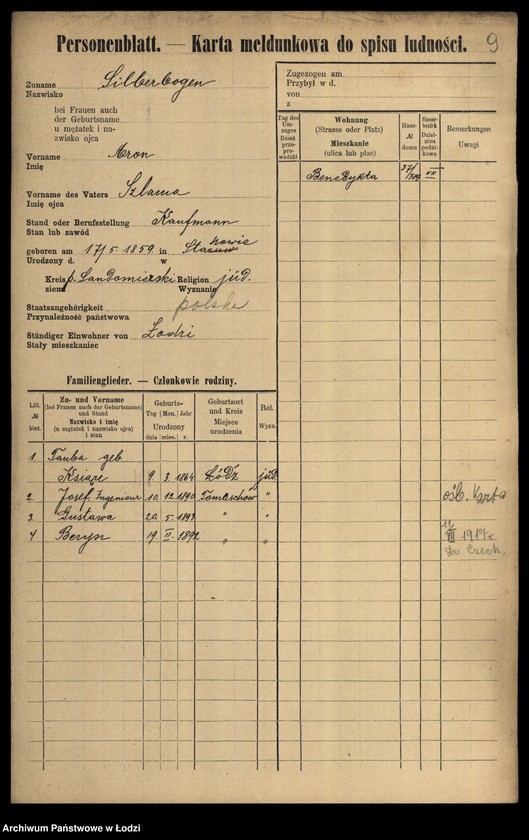 Personenblatt. — Karta meldunkowa do spisu ludności. 9
Zuname Silberbogen
Nazwisko
bei Frauen auch
der Geburtsname
u mężatek i na-
zwisko ojca
Vorname Aron
Imię
Vorname des Vaters Szlama
Imię ojca
Stand oder Berufsstellung Kaufmann
Stan lub zawód
geboren am 17/5 1859 in
Urodzony d. w
Kreis p. Sandomierski Religion jüd.
ziem Wyznanie
Staatsangehörigkeit polska
Przynależność państwowa
Ständiger Einwohner von Łodzi
Stały mieszkaniec
Zugezogen am
Przybył w d.
von
z
Tag des Um-zuges Dzień prze-prowadzki
Wohnung
(Strasse oder Platz)
Mieszkanie
(ulica lub plac)
Haus- № domu
Steuer-bezirk Dzielnica podatkowa
Bemerkungen
Uwagi
Benedykta 37/ VII
Familienglieder. — Członkowie rodziny.
Lfd. № bież.
Zu- und Vorname
(bei Frauen auch der Geburtsname)
und Stand
Nazwisko i imię
(u mężatek i nazwisko ojca)
i stan
Geburts-
Tag Mon. Jahr
Urodzony
dnia mies. r.
Geburtsort
und Kreis
Miejsce
urodzenia
Rel.
Wyzn.
1. Tauba geb.
Książe 9. 3. 1864 Łódź jüd.
2 Josef, Ingenieur 10. 12. 1890 Tomaschów " osb. Karta
3 Gustawa 20. 5. 1893 " "
4 Beryn 19. II. 1892 " "
17
VII 1917 r.
do Czech.
Archiwum Państwowe w Łodzi